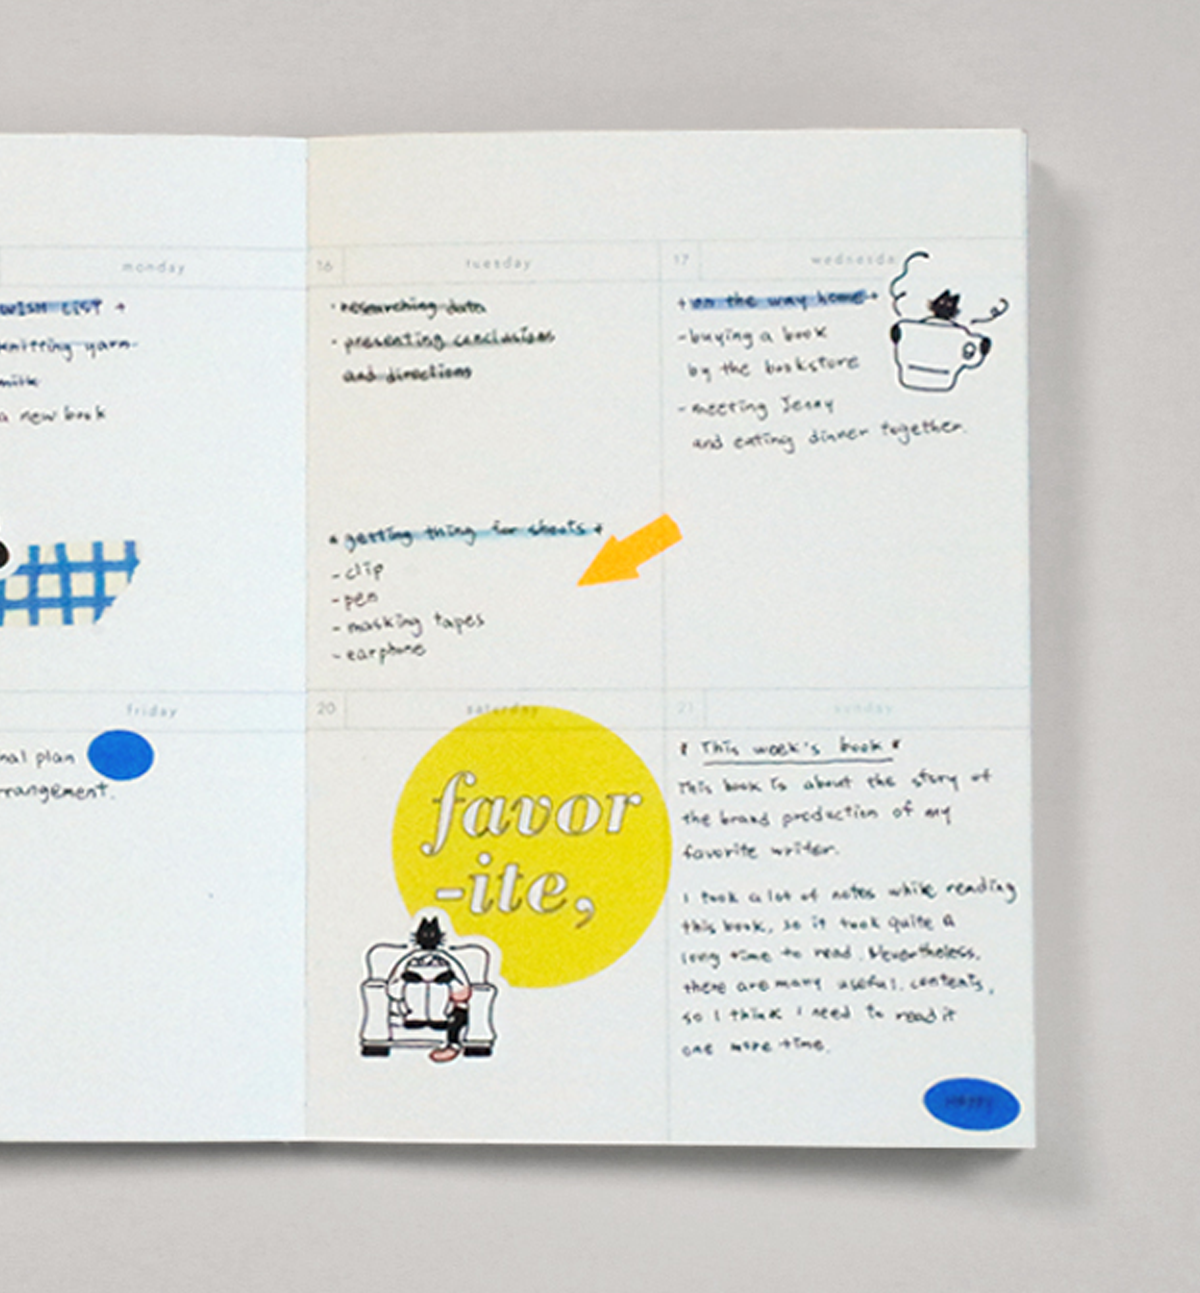 monday
WISH LIST
knitting yarn
milk
a new book
16 tuesday
· researching data
· presenting conclusions
and directions
* getting thing for sheets *
- clip
- pen
- masking tapes
- earphone
17 wednesda
+ on the way home +
- buying a book
by the bookstore
- meeting Jenny
and eating dinner together.
friday
nal plan
rrangement.
20 saturday
favor
-ite,
21 sunday
This week's book
This book is about the story of
the brand production of my
favorite writer.
I took a lot of notes while reading
this book, so it took quite a
long time to read. Nevertheless,
there are many useful contents,
so I think I need to read it
one more time.
HAPPY